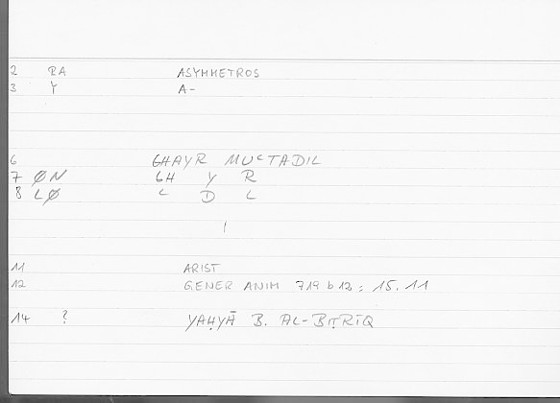 2 RA ASYMMETROS
3 Y A-
6 GHAYR MUʿTADIL
7 ØN GH Y R
8 LØ ʿ D L
11 ARIST
12 GENER ANIM 719 b 12 = 15. 11
14 ? YAḤYĀ B. AL-BIṬRĪQ